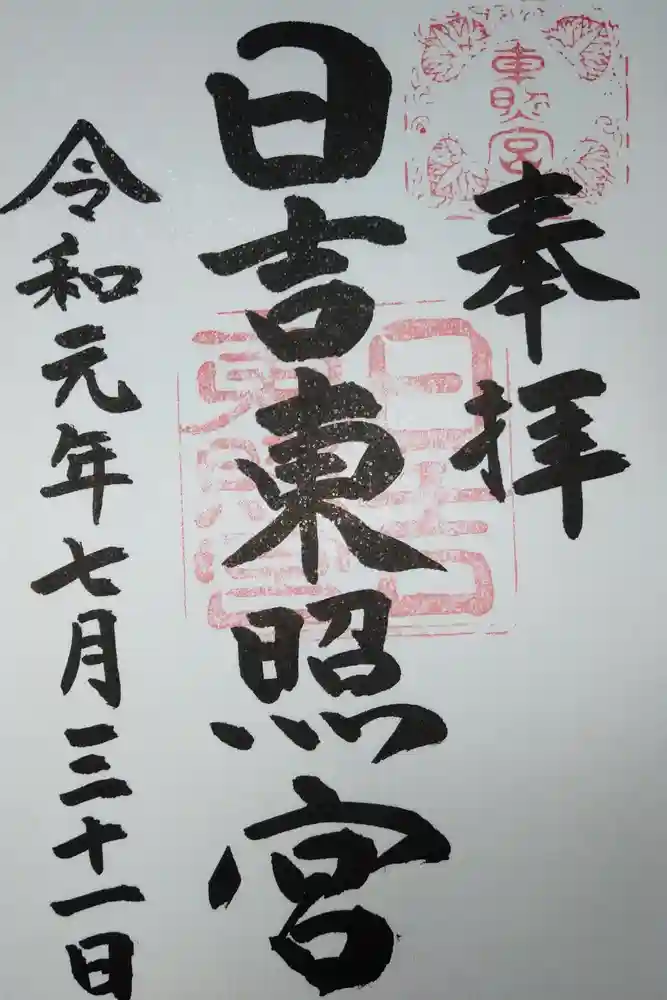 東照宮
奉拝
日吉東照宮
日吉東照宮
令和元年七月三十一日